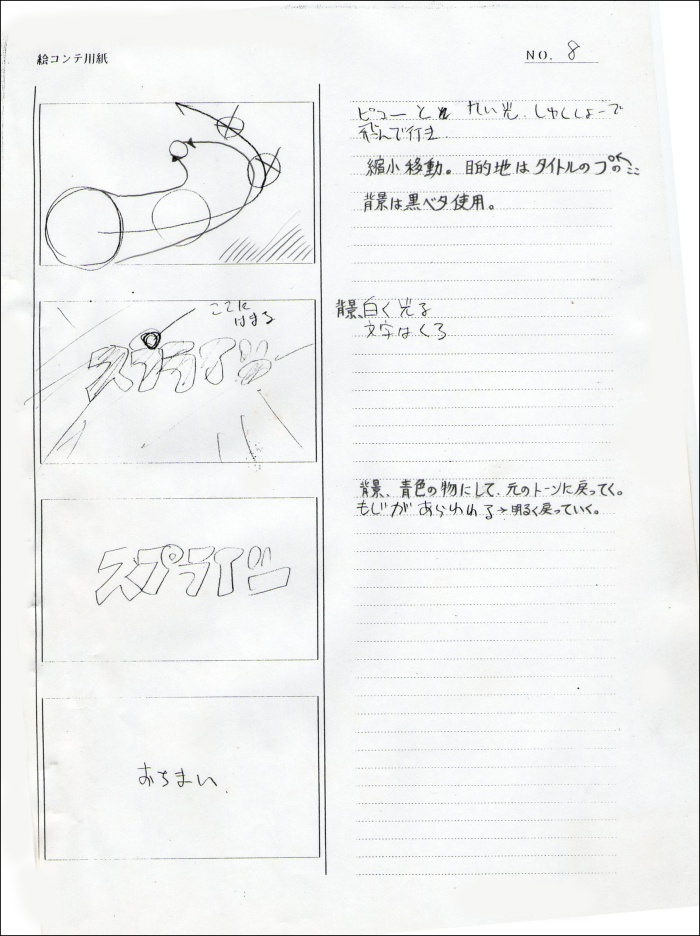 絵コンテ用紙
NO. 8
ピューと 丸い光、しゅくしょーで
飛んで行き
縮小移動。目的地はタイトルのプのここ
背景は黒ベタ使用。
ここに
はまる
スプライツ
背景、白く光る
文字はくろ
背景、青色の物にして、元のトーンに戻ってく。
もじがあらわれる→明るく戻っていく。
スプライツ
おちまい、